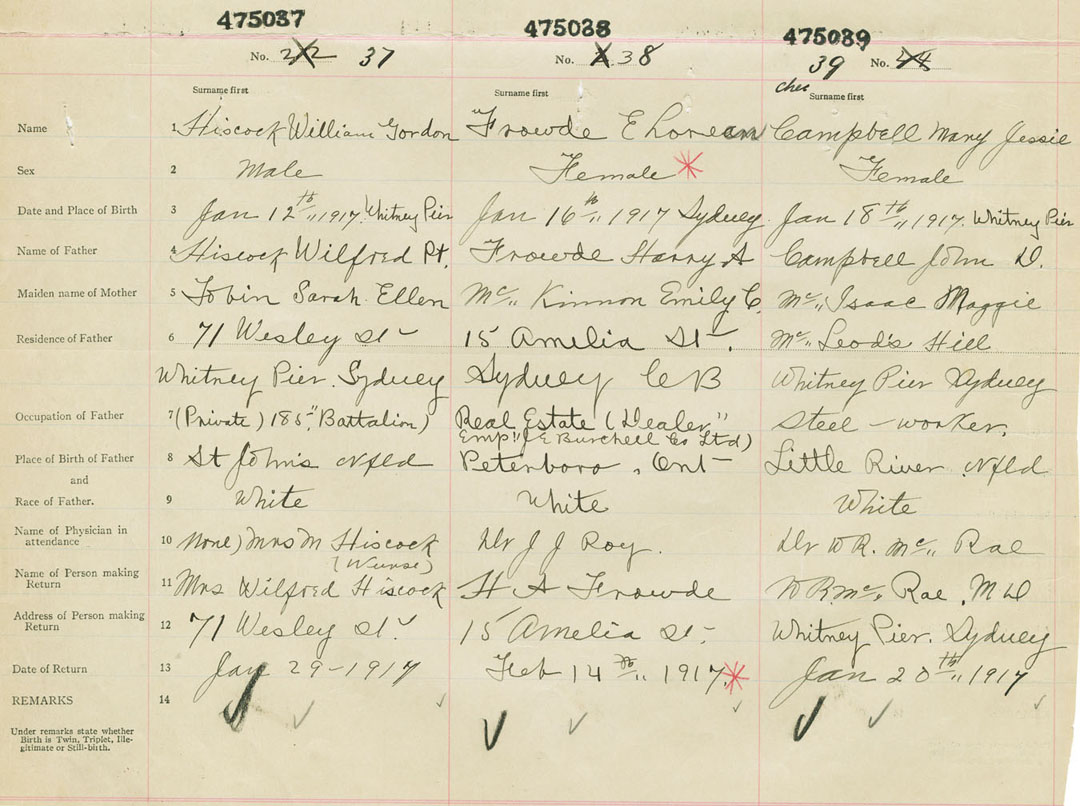 475037 475038 475039
No. 22 37 No. 38 39 No. 24
Surname first Surname first Surname first
Name 1 Hiscock William Gordon "Frowde E Lorean Campbell Mary Jessie
Sex 2 Male Female Female
Date and Place of Birth 3 Jan 12th,, 1917. Whitney Pier Jan 16th,, 1917 Sydney Jan 18th,, 1917. Whitney Pier
Name of Father 4 Hiscock Wilfred Pt. Frowde Harry A Campbell John D.
Maiden name of Mother 5 Tobin Sarah Ellen Mc,, Kinnon Emily C. Mc,, Isaac Maggie
Residence of Father 6 71 Wesley St 15 Amelia St. Mc,, Leod's Hill
Whitney Pier. Sydney Sydney CB Whitney Pier Sydney
Occupation of Father 7 (Private) 185," Battalion) Real Estate (Dealer" Steel - worker.
J E Burchell Co Ltd)
Place of Birth of Father 8 St John's Nfld Peterboro, Ont Little River Nfld
and
Race of Father. 9 White White White
Name of Physician in
attendance 10 None) Mrs M Hiscock Dr J J Roy. Dr W R. Mc,, Rae
(Nurse)
Name of Person making
Return 11 Mrs Wilfred Hiscock H A Frowde W R. Mc,, Rae. M D
Address of Person making
Return 12 71 Wesley St. 15 Amelia St. Whitney Pier. Sydney
Date of Return 13 Jan 29-1917 Feb 14th,, 1917. Jan 20th,, 1917
REMARKS 14
Under remarks state whether
Birth is Twin, Triplet, Ille-
gitimate or Still-birth.